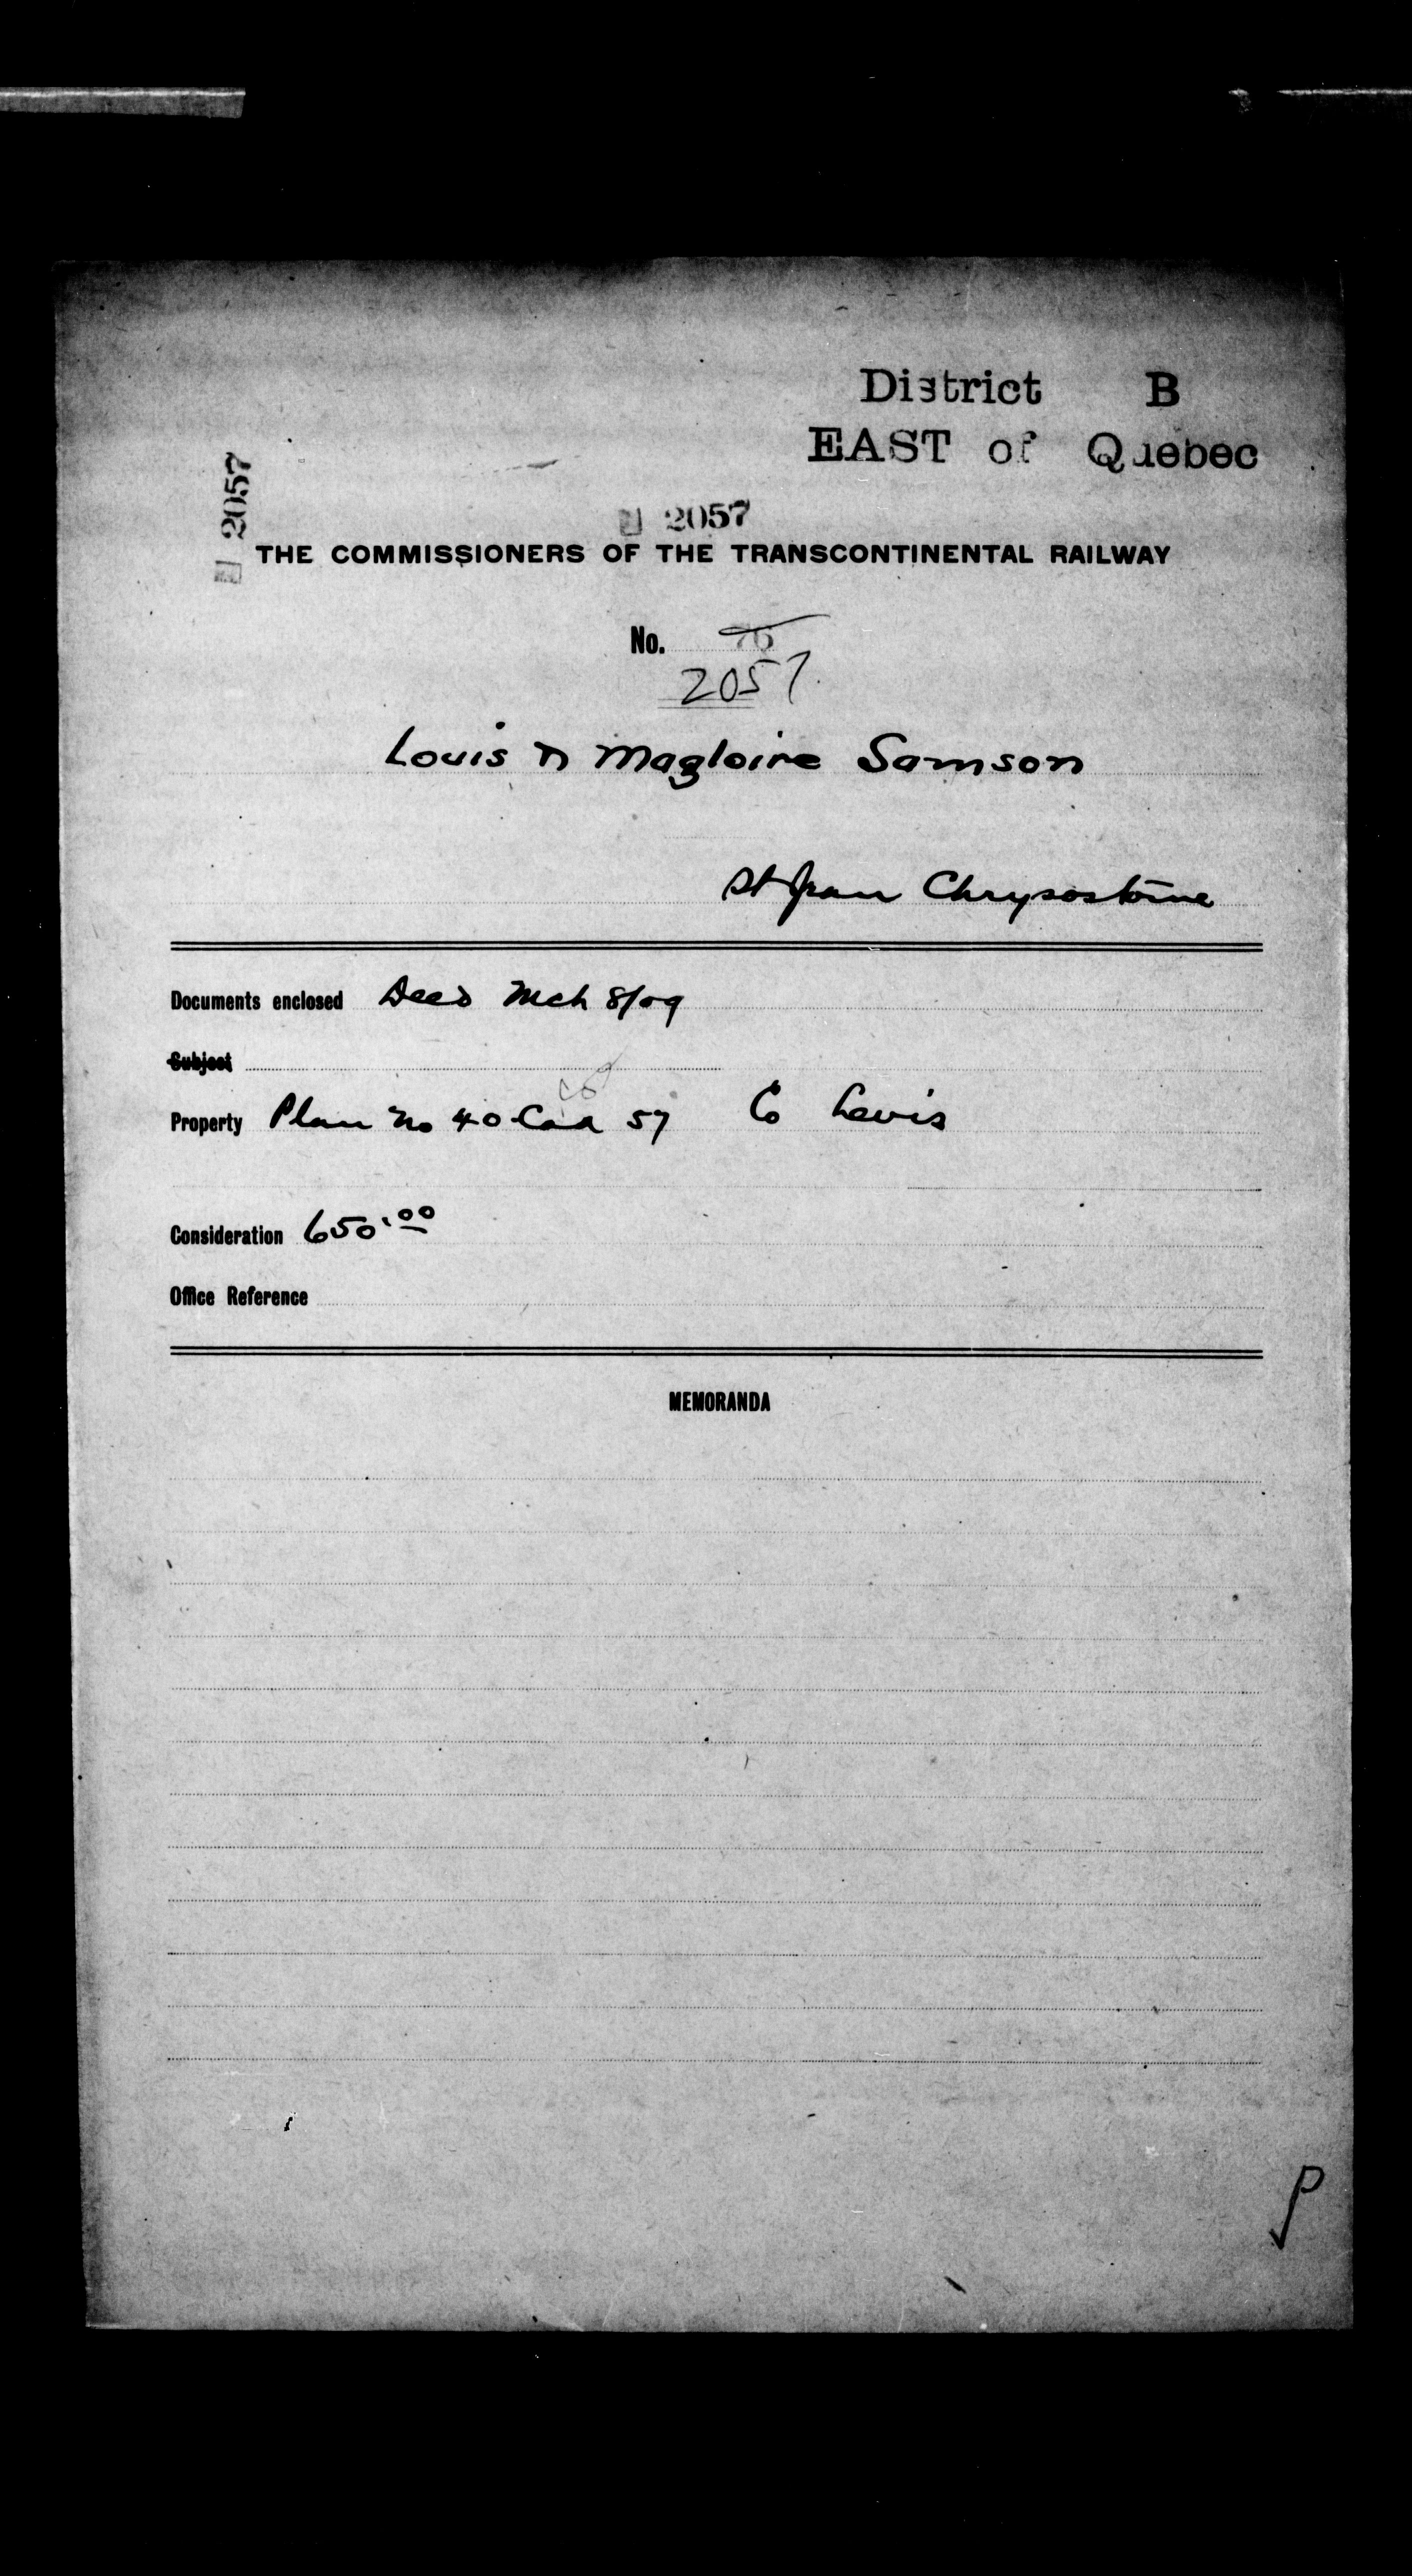 District B
EAST of Quebec
2057
2057
THE COMMISSIONERS OF THE TRANSCONTINENTAL RAILWAY
No. 76
2057.
Louis Magloire Samson
St Jean Chrysostome
Documents enclosed Deed Mch 8/09
Subject
Property Plan No 40 Cad 57 Co Levis
Consideration 650.00
Office Reference
MEMORANDA
P